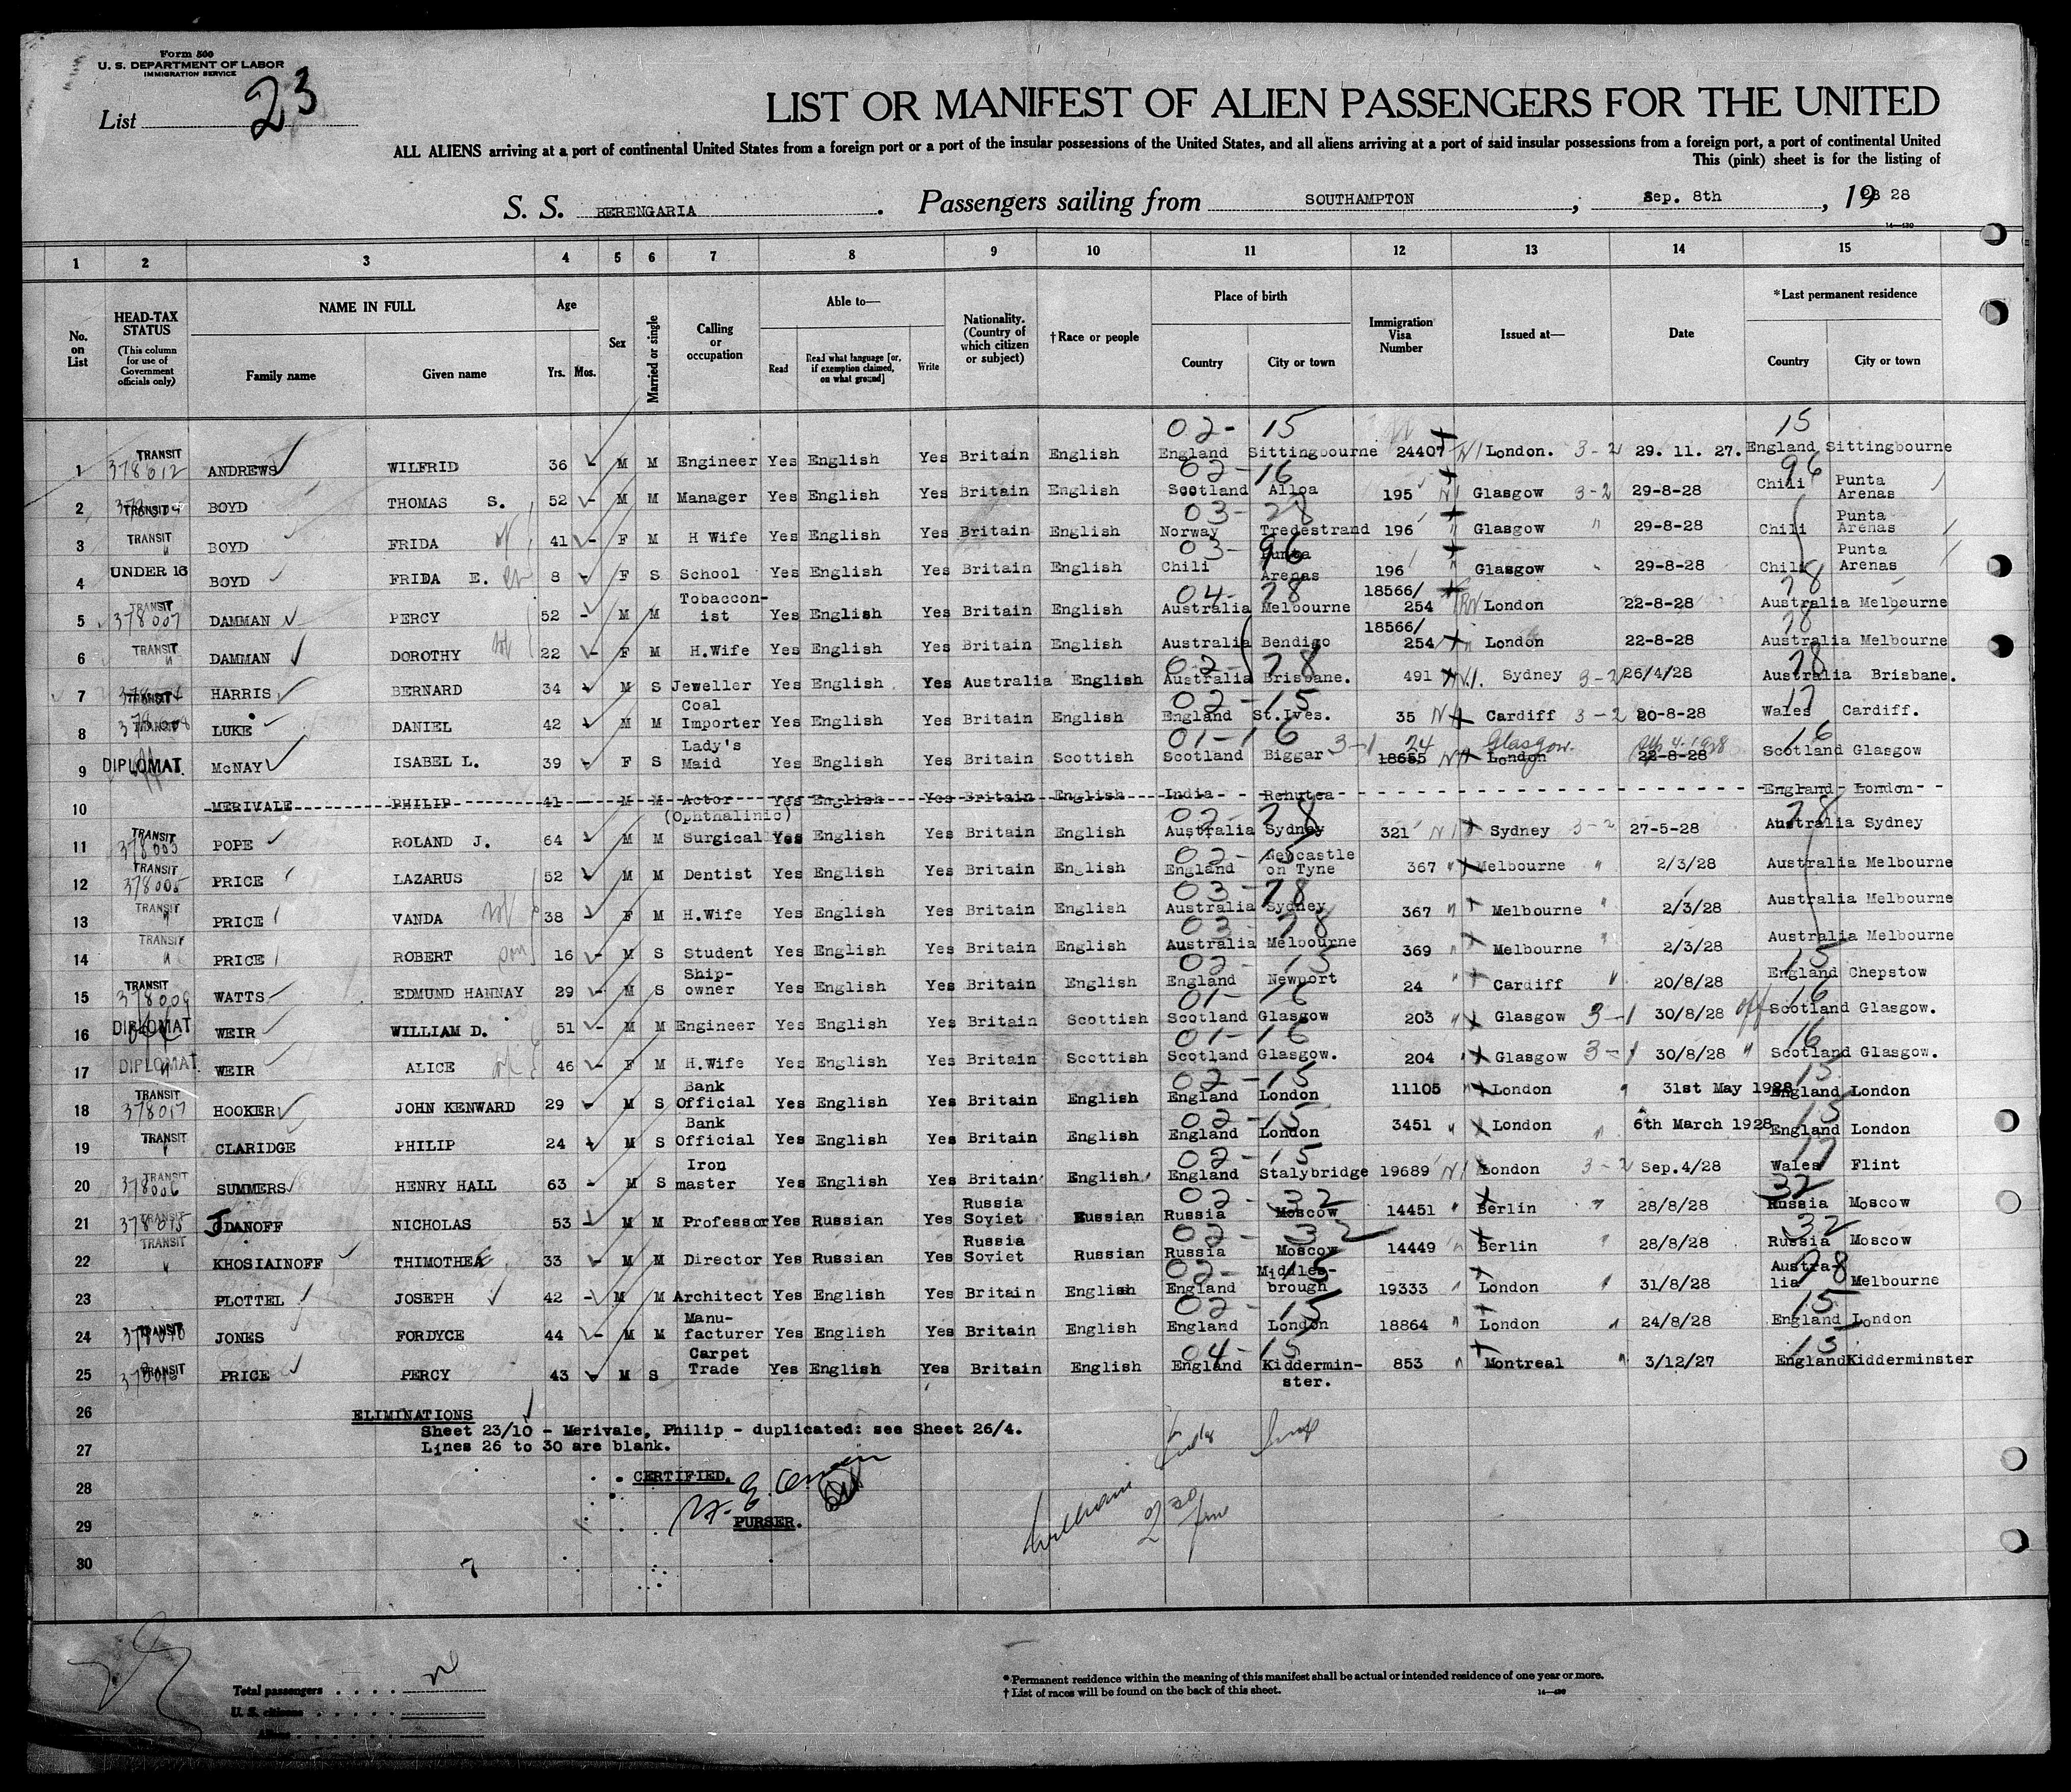 Form 500
U. S. DEPARTMENT OF LABOR
IMMIGRATION SERVICE
List 23
LIST OR MANIFEST OF ALIEN PASSENGERS FOR THE UNITED
ALL ALIENS arriving at a port of continental United States from a foreign port or a port of the insular possessions of the United States, and all aliens arriving at a port of said insular possessions from a foreign port, a port of continental United
This (pink) sheet is for the listing of
S. S. BERENGARIA. Passengers sailing from SOUTHAMPTON, Sep. 8th, 19 28
14—430
1 2 3 4 5 6 7 8 9 10 11 12 13 14 15
No. on List
HEAD-TAX STATUS (This column for use of Government officials only)
NAME IN FULL
Family name Given name
Age
Yrs. Mos.
Sex
Married or single
Calling or occupation
Able to—
Read Read what language [or, if exemption claimed, on what ground] Write
Nationality. (Country of which citizen or subject)
†Race or people
Place of birth
Country City or town
Immigration Visa Number
Issued at—
Date
*Last permanent residence
Country City or town
02- 15 15
1 TRANSIT 378012 ANDREWS WILFRID 36 M M Engineer Yes English Yes Britain English England Sittingbourne 24407 London. 3-2 29. 11. 27. England Sittingbourne
02-16 96
2 TRANSIT BOYD THOMAS S. 52 M M Manager Yes English Yes Britain English Scotland Alloa 195 Glasgow 3-2 29-8-28 Chili Punta Arenas
03-28
3 TRANSIT " BOYD FRIDA 41 F M H Wife Yes English Yes Britain English Norway Tredestrand 196 Glasgow " 29-8-28 Chili Punta Arenas
03-96
4 UNDER 16 BOYD FRIDA E. 8 F S School Yes English Yes Britain English Chili Punta Arenas 196 Glasgow 29-8-28 Chili Punta Arenas
04-78 78
5 TRANSIT 378007 DAMMAN PERCY 52 M M Tobaccon-ist Yes English Yes Britain English Australia Melbourne 18566/254 London 22-8-28 Australia Melbourne
78
6 TRANSIT " DAMMAN DOROTHY 22 F M H.Wife Yes English Yes Britain English Australia Bendigo 18566/254 London 22-8-28 Australia Melbourne
02-78 78
7 TRANSIT HARRIS BERNARD 34 M S Jeweller Yes English Yes Australia English Australia Brisbane. 491 Sydney 3-2 26/4/28 Australia Brisbane.
02-15 17
8 TRANSIT 378008 LUKE DANIEL 42 M M Coal Importer Yes English Yes Britain English England St.Ives. 35 Cardiff 3-2 20-8-28 Wales Cardiff.
01-16 3-1 24 Glasgow. Sep 4-1928 16
9 DIPLOMAT. McNAY ISABEL L. 39 F S Lady's Maid Yes English Yes Britain Scottish Scotland Biggar 18655 London 22-8-28 Scotland Glasgow
10 MERIVALE PHILIP 41 M M Actor Yes English Yes Britain English India Rehutea England London
02-78 78
11 TRANSIT 378003 POPE ROLAND J. 64 M M (Ophthalinic) Surgical Yes English Yes Britain English Australia Sydney 321 Sydney 3-2 27-5-28 Australia Sydney
02-15
12 TRANSIT 378005 PRICE LAZARUS 52 M M Dentist Yes English Yes Britain English England Newcastle on Tyne 367 " Melbourne " 2/3/28 Australia Melbourne
03-78
13 TRANSIT " PRICE VANDA 38 F M H.Wife Yes English Yes Britain English Australia Sydney 367 " Melbourne " 2/3/28 Australia Melbourne
03-78
14 TRANSIT " PRICE ROBERT son 16 M S Student Yes English Yes Britain English Australia Melbourne 369 " Melbourne " 2/3/28 Australia Melbourne
02-15 15
15 TRANSIT 378009 WATTS EDMUND HANNAY 29 M S Ship-owner Yes English Yes Britain English England Newport 24 " Cardiff " 20/8/28 England Chepstow
01-16 16
16 DIPLOMAT WEIR WILLIAM D. 51 M M Engineer Yes English Yes Britain Scottish Scotland Glasgow 203 " Glasgow 3-1 30/8/28 off Scotland Glasgow.
01-16 16
17 DIPLOMAT. " WEIR ALICE 46 F M H.Wife Yes English Yes Britain Scottish Scotland Glasgow. 204 " Glasgow 3-1 30/8/28 " Scotland Glasgow.
02-15 15
18 TRANSIT 378017 HOOKER JOHN KENWARD 29 M S Bank Official Yes English Yes Britain English England London 11105 " London " 31st May 1928 England London
02-15 15
19 TRANSIT CLARIDGE PHILIP 24 M S Bank Official Yes English Yes Britain English England London 3451 " London " 6th March 1928 England London
02-15 17
20 TRANSIT 378006 SUMMERS HENRY HALL 63 M S Iron master Yes English Yes Britain English England Stalybridge 19689 London 3-2 Sep.4/28 Wales Flint
02-32 32
21 TRANSIT 378015 JDANOFF NICHOLAS 53 M M Professor Yes Russian Yes Russia Soviet Russian Russia Moscow 14451 " Berlin " 28/8/28 Russia Moscow
02-32 32
22 TRANSIT " KHOSIAINOFF THIMOTHEE 33 M M Director Yes Russian Yes Russia Soviet Russian Russia Moscow 14449 " Berlin " 28/8/28 Russia Moscow
02-15 78
23 PLOTTEL JOSEPH 42 M M Architect Yes English Yes Britain English England Middles-brough 19333 " London " 31/8/28 Austra-lia Melbourne
02-15 15
24 TRANSIT JONES FORDYCE 44 M M Manu-facturer Yes English Yes Britain English England London 18864 " London " 24/8/28 England London
04-15 15
25 TRANSIT PRICE PERCY 43 M S Carpet Trade Yes English Yes Britain English England Kiddermin-ster. 853 " Montreal " 3/12/27 England Kidderminster
26 ELIMINATIONS
Sheet 23/10 - Merivale, Philip - duplicated: see Sheet 26/4.
27 Lines 26 to 30 are blank.
28 CERTIFIED.
29 PURSER.
30
Total passengers
U. S. citizens
Aliens
*Permanent residence within the meaning of this manifest shall be actual or intended residence of one year or more.
† List of races will be found on the back of this sheet.
14—430